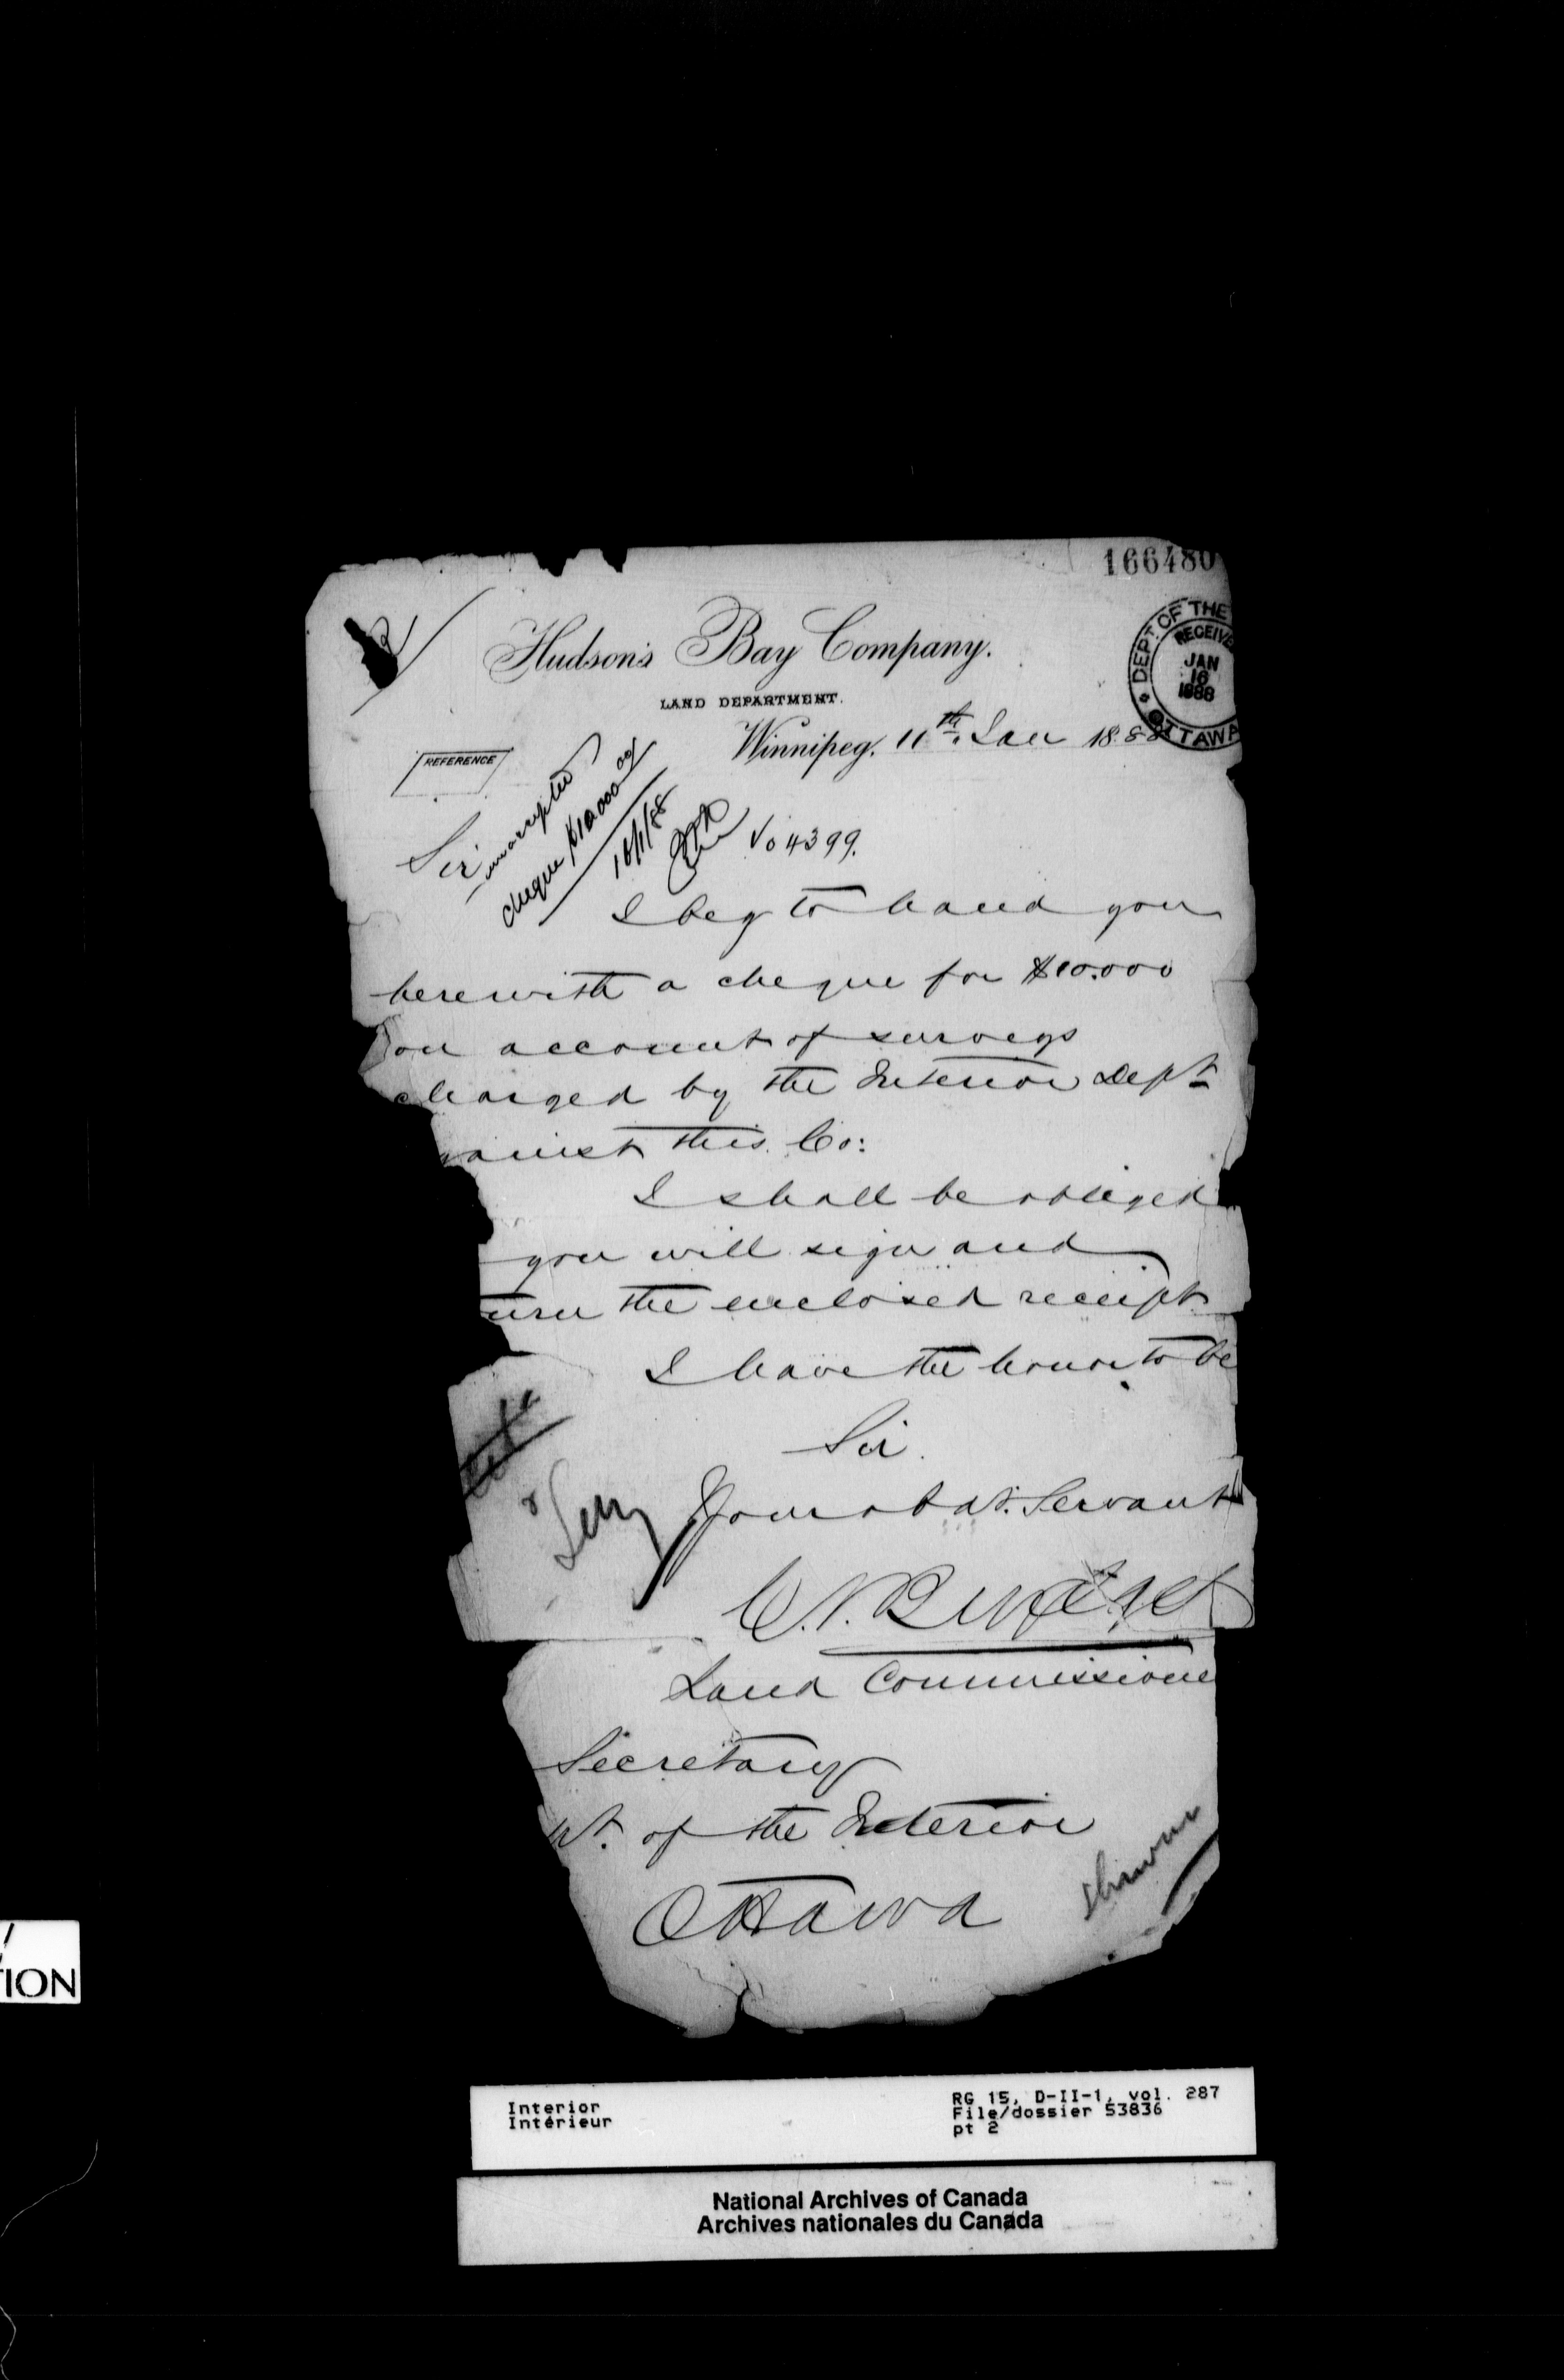 166480
Hudson's Bay Company.
LAND DEPARTMENT.
DEPT. OF THE
RECEIVE
JAN
16
1888
OTTAWA
Winnipeg, 11th Jan 1888
REFERENCE
cheque $10,000 00/
16/1/88
No 4399.
Sir
I beg to hand you
herewith a cheque for $10.000
on account of surveys
charged by the Interior Dept
gainst this Co:
I shall be obliged
you will sign and
urn the enclosed receipt
I have the honor to be
Sir.
Your obdt. Servant
Land Commissione
Secretary
pt. of the Interior
Ottawa
TION
Interior
Intérieur
RG 15, D-II-1, vol. 287
File/dossier 53836
pt 2
National Archives of Canada
Archives nationales du Canada